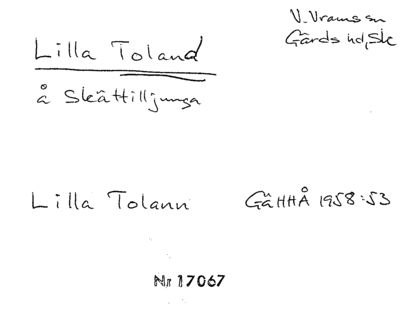 Lilla Toland
V. Vrams sn
Gärds hd, Sk
å Skättilljunga
Lilla Tolann GäHHÅ 1958:53
Nr 17067